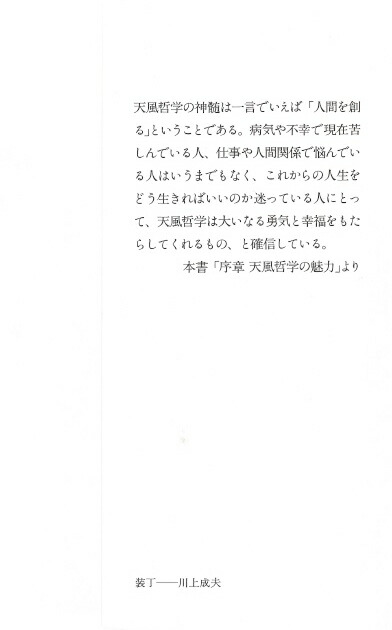 天風哲学の神髄は一言でいえば「人間を創
る」ということである。病気や不幸で現在苦
しんでいる人、仕事や人間関係で悩んでい
る人はいうまでもなく、これからの人生を
どう生きればいいのか迷っている人にとっ
て、天風哲学は大いなる勇気と幸福をもた
らしてくれるもの、と確信している。
本書「序章 天風哲学の魅力」より
装丁――川上成夫